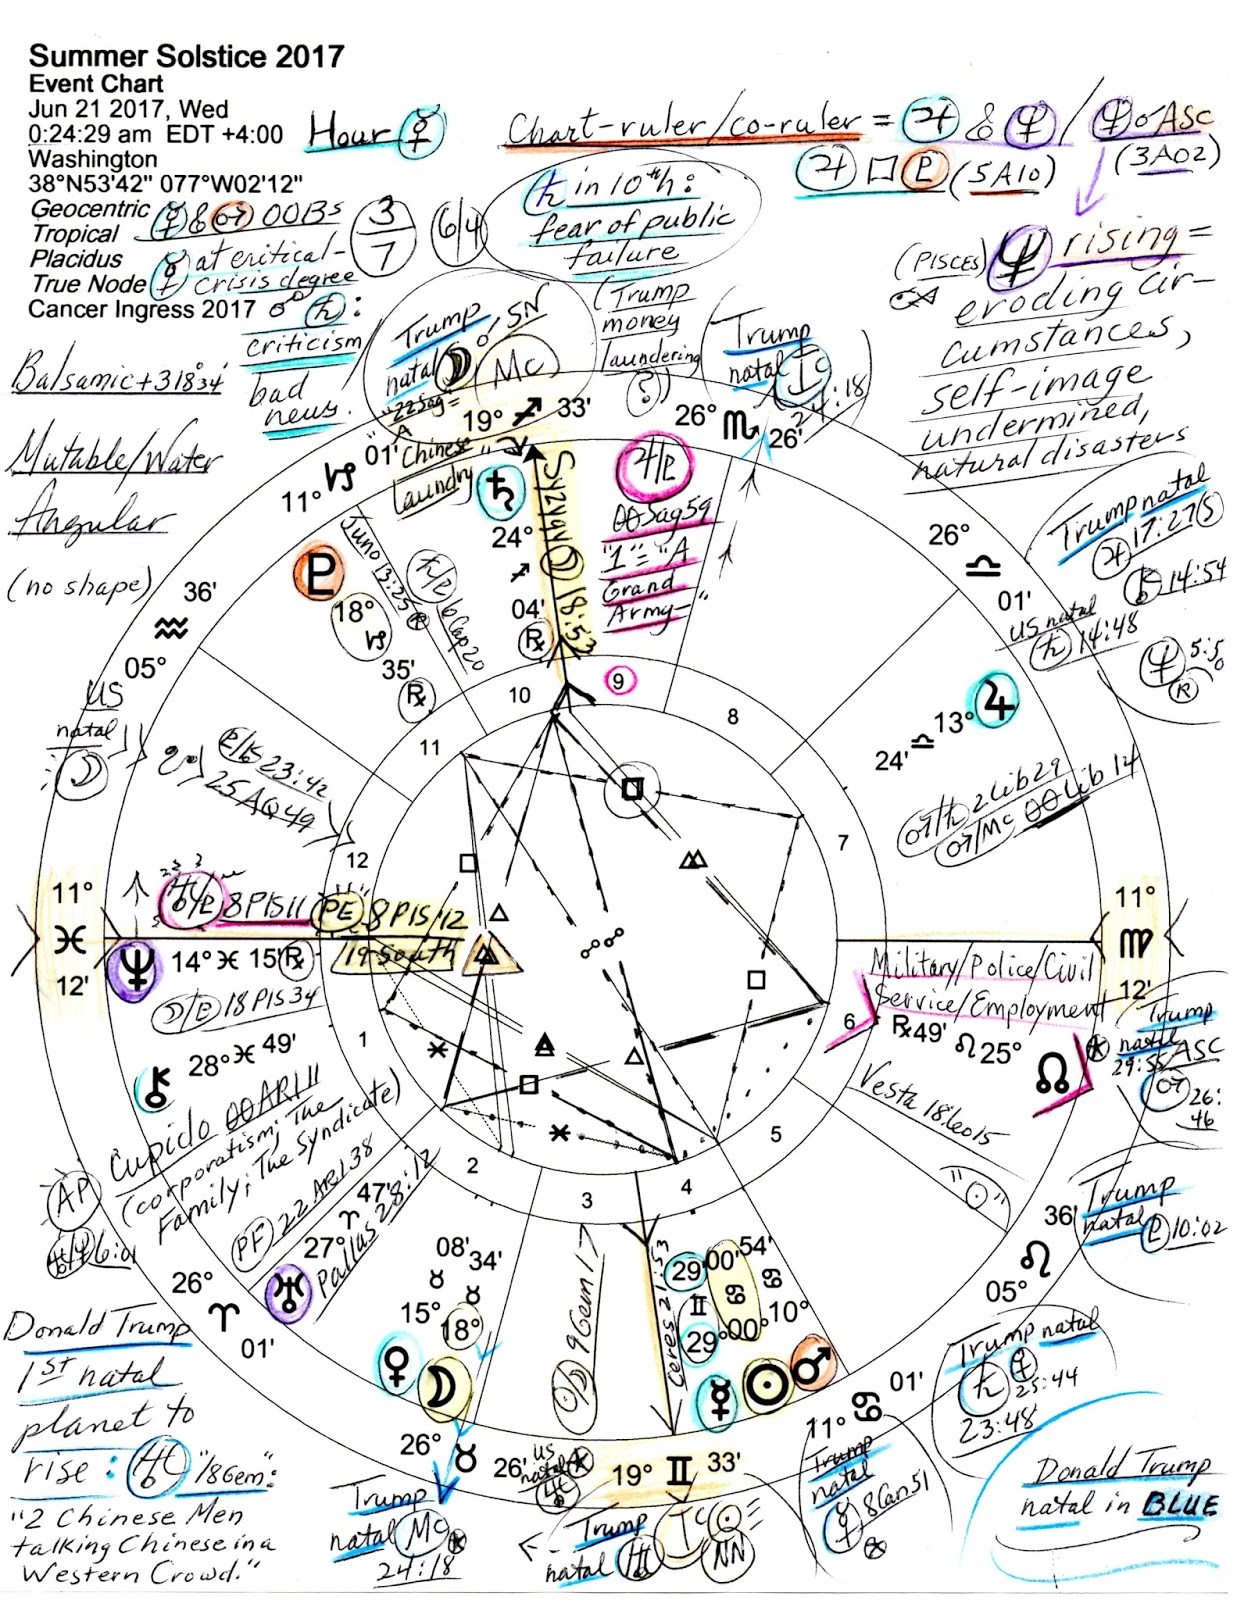 Summer Solstice 2017
Event Chart
Jun 21 2017, Wed
0:24:29 am EDT +4:00
Washington
38°N53'42" 077°W02'12"
Geocentric
Tropical
Placidus
True Node
Cancer Ingress 2017
Hour ☿
☿ & ♂ OOBs
3/7
6/4
☿ at critical-
crisis degree
☍ ♄:
criticism
bad
news.
Chart-ruler/co-ruler = ♃ & ♆ / ♆ ☌ Asc
(3A02)
♃ □ ♇ (5A10)
♄ in 10th:
fear of public
failure
(PISCES) ♆ rising =
♓ eroding cir-
cumstances,
self-image
undermined,
natural disasters
Balsamic +318°34'
Mutable/Water
Angular
(no shape)
Trump
natal ☽ ☌ SN
Mc
"22 Sag =
"A
Chinese
laundry"
(Trump
money
laundering
?)
Trump
natal IC
24:18
19° ♐ 33'
26° ♏ 26'
11° ♑ 01'
♄
24°
♐
04'
℞
Syzygy ☽ 18:53
♃/♇
00 Sag 59
"1" = "A
Grand
Army-"
Juno 13:25 ℞
♄/♇ 6 Cap 20
♇
18°
♑
35'
℞
36'
♒
05°
US
natal
☽
♇/⚷ 23:42
25 AQ 49
26°
♎
01'
Trump natal
♃ 17:27 S
⚷ 14:54
♆ 5:50
℞
US natal
♄ 14:48
♃
13°
♎
24'
♂/♄ 2 Lib 29
♂/Mc 00 Lib 14
8
9
10
11
12
7
11°
♓
12'
♅/♇ 8 PIS 11
PE 8 PIS 12
19 South
♆ 14° ♓ 15' ℞
☽/♇ 18 PIS 34
⚷ 28° ♓ 49'
11°
♍
12'
Military/Police/Civil
Service/Employment
℞ 49' ♌ 25° ☊
Trump
natal
29:55 ASC
♂ 26:
46
Vesta 18 Leo 15
"☉"
1
2
3
4
5
6
Cupido 00 ARI 11
(corporatism; The
Family; The Syndicate)
AP
6:01
PF 22 ARI 38
47'
♈
27°
♅
Pallas 28:12
26°
♈
01'
08'
♉
15°
♀
34'
♉
18°
☽
☉/☽ 9 Gem 17
Ceres 21:53
29'
♊
29°
☿
00'
♋
00°
☉
54'
♋
10°
♂
36'
♌
05°
Trump
natal ♇ 10:02
Trump natal
♄ ♀
25:44
23:48
11° ♋ 01'
Trump
natal
☿ 8 Can 51
19° ♊ 33'
26° ♉ 26'
US
natal
♅
Trump
natal Mc
24:18
Trump
natal ♅ IC ☉
NN
Donald Trump
1st natal
planet to
rise: ♅ "18 Gem":
"2 Chinese Men
talking Chinese in a
Western Crowd."
Donald Trump
natal in BLUE